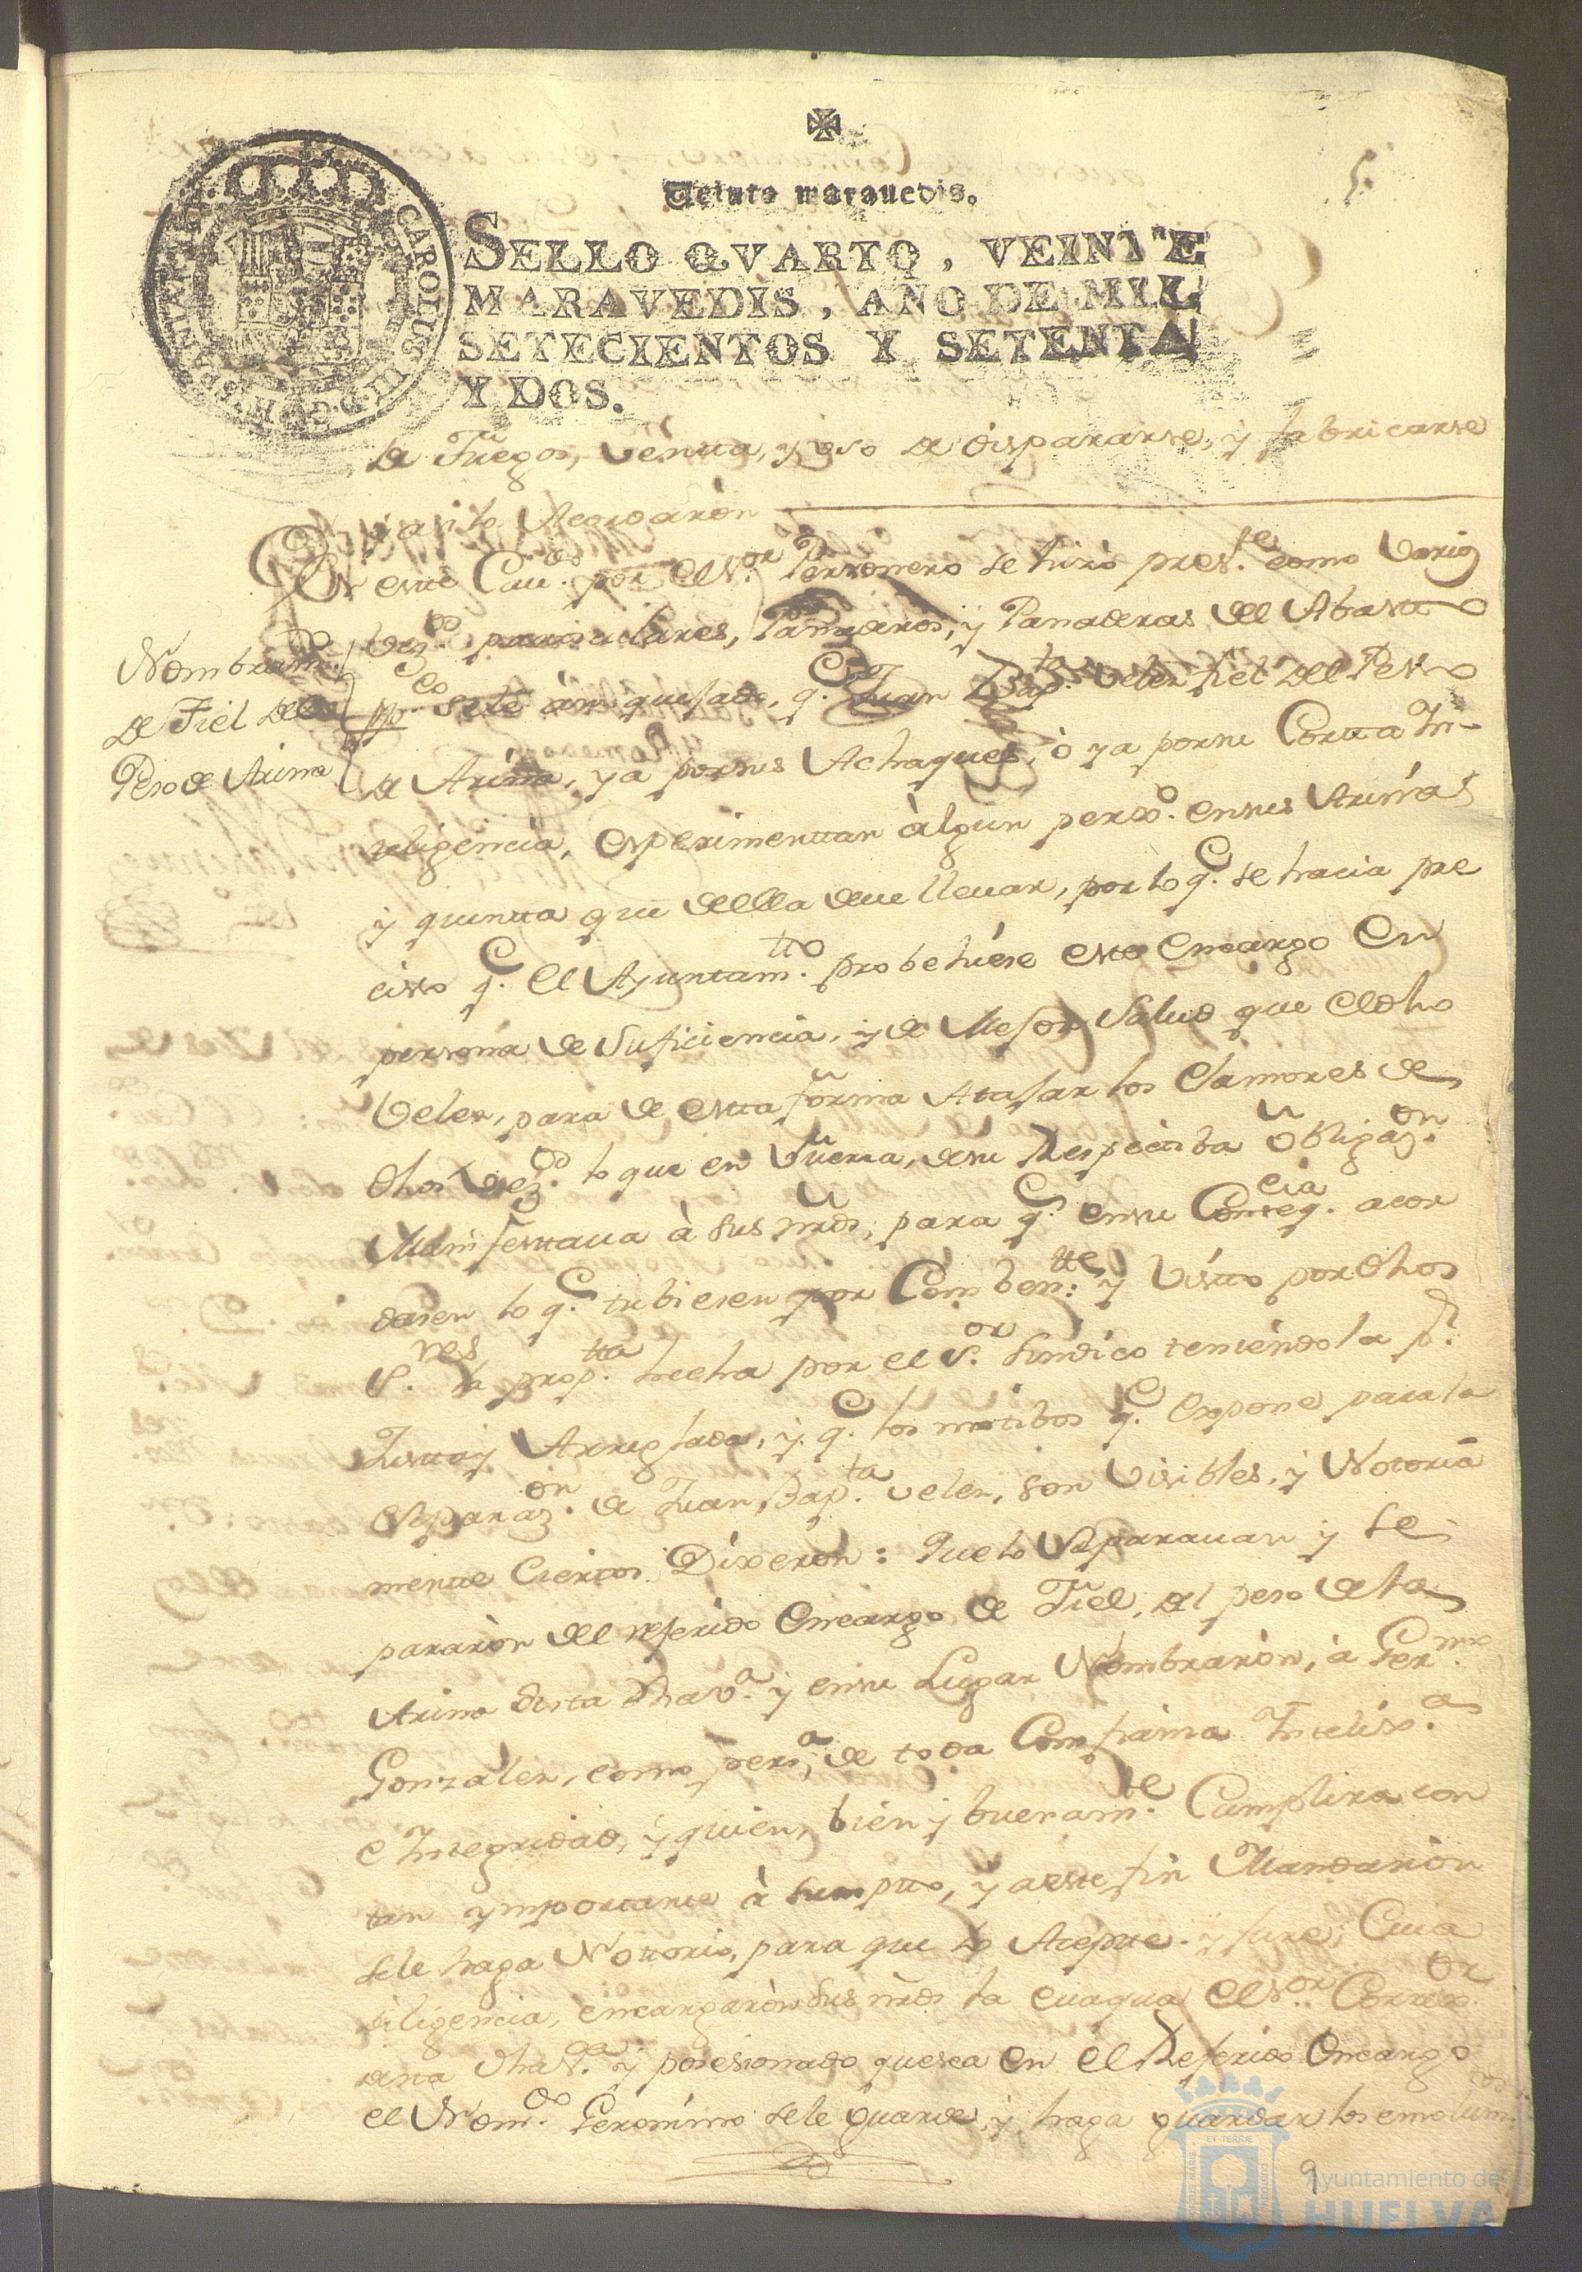 5.
Veinte marauedis.
SELLO QVARTO, VEINTE
MARAVEDIS, AÑO DE MIL
SETECIENTOS Y SETENTA
Y DOS.
CAROLUS III D.G. HISPANIAR
de Fuegos, venta, y uso de dispararse, y fabricarse
y asi lo Acordaròn
En este Caudo. por el Sor. Personero se hizo preste. como Varios
Nombramto.
de Fiel del
Peso de Arina
vezos. particulares, Panaderos, y Panaderas del Abasto
ppco. se le àn quejado, q. Juan Bapta. Velez fiel del Peso
de Arina, ya por sus Achaques, ò ya por su Corta In-
teligencia, esperimentan àlgun perxo. en sus Arinas
y quenta que de ella deue lleuar, por lo q. se hacia pre
ciso q. el Ayuntamtto. probehiese este encargo en
persona de Suficiencia, y de Mejor Salud que el dho
Velez, para de esta forma Atajar los clamores de
dhos vezos. lo que en fuerza, de su Respectiba obligazon.
Manifestaua à sus mrds, para q. en su Conseqcia. acor
dasen lo q. tubiesen por Combentte. y Visto por dhos
Sres. la proptta. hecha por el Sor. Sindico teniendola pr.
Justa y Arreglada, y q. los motibos q. expone para la
separazon. de Juan Bapta. Velez, son Visibles, y Notoria
mente Ciertos. Dixeron: Que lo Separauan y Se
pararòn del referido encargo de Fiel, del peso de la
Arina desta dha Va. y en su Lugar Nombraròn, à Germo.
Gonzalez, como persa, de toda Confianza Intelixa.
e Integridad, y quien, bien y buenamte. Cumplira con
tan ymportante àsumpto, y a este fin Mandaròn
se le haga Nottorio, para que lo Acepte y jure, Cuia
diligencia, encargaròn sus mrds la euaqua el Sor. Corrxor.
desta dha Va. y posesionado que sea en el Referido Encargo
el Nomdo. Geronimo se le guarde, y haga guardar los emolum
9
Ayuntamiento de
HUELVA